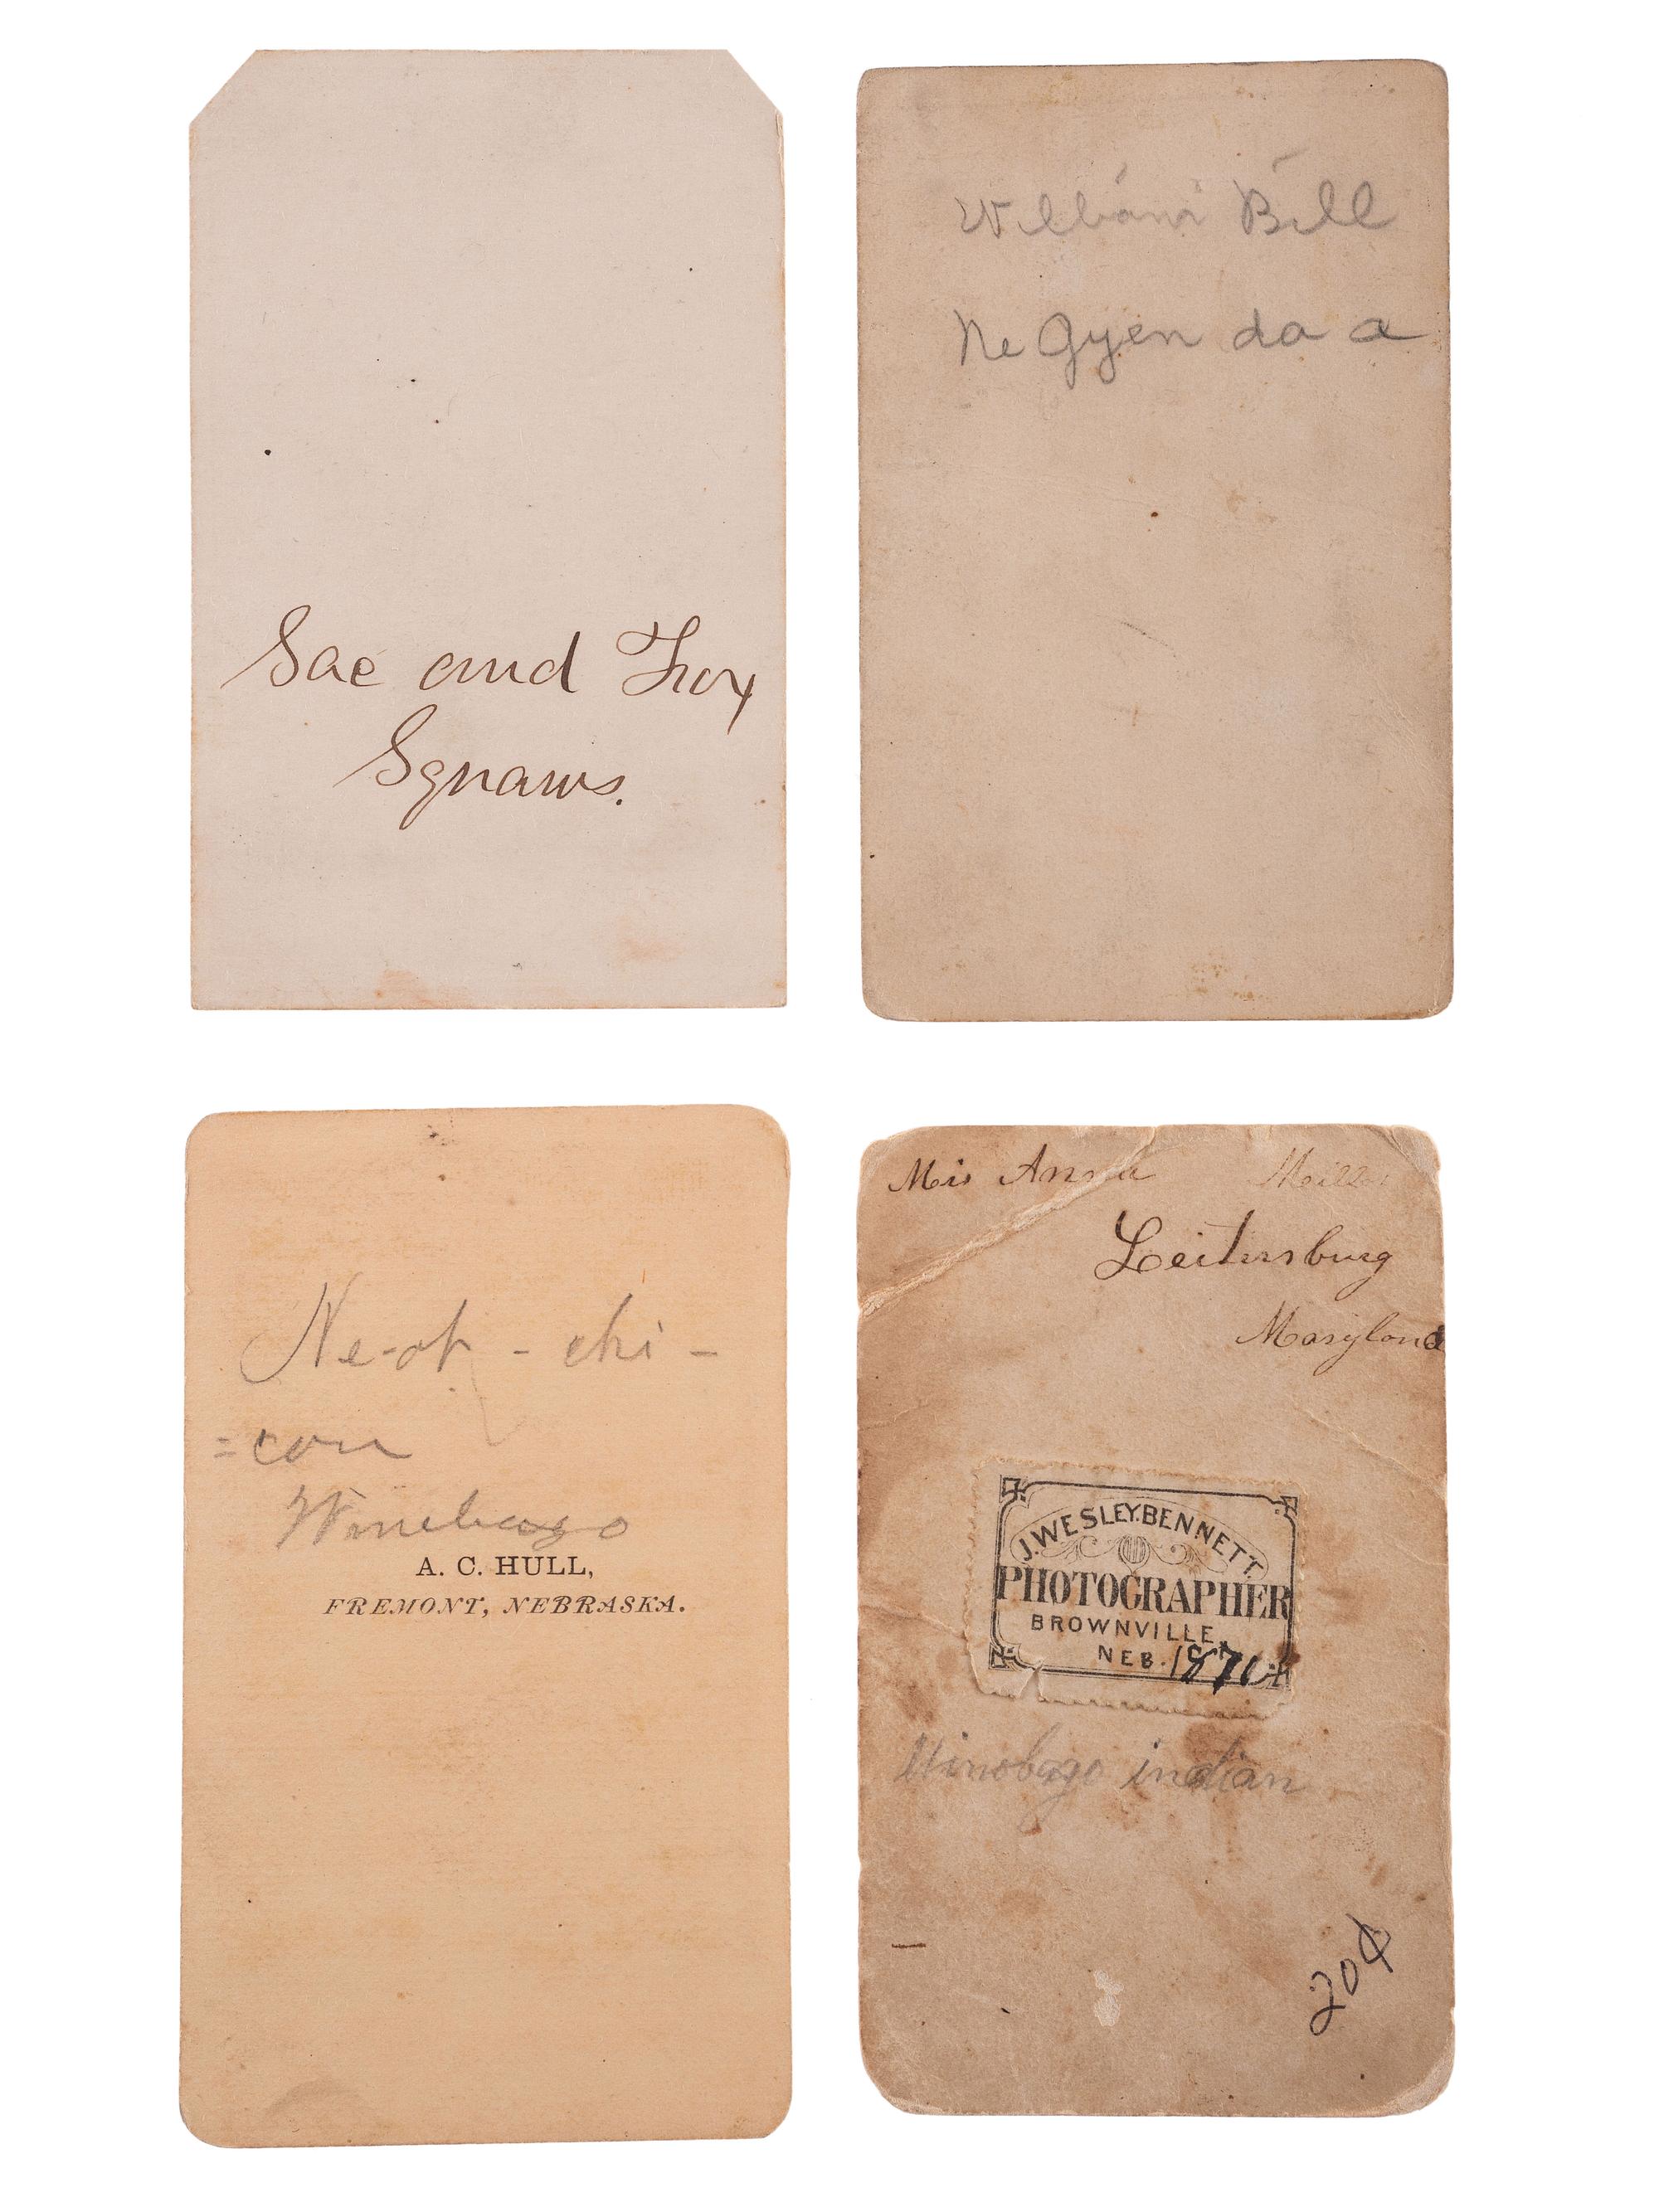 Sac and Fox
Squaws.
William Bill
Ne Gyen da a
Ne-op-chi-
=con
Winebago
A. C. HULL,
FREMONT, NEBRASKA.
Mis Anna Miller
Leitersburg
Maryland
J. WESLEY. BENNETT.
PHOTOGRAPHER
BROWNVILLE,
NEB. 1871
Winobago indian
20¢